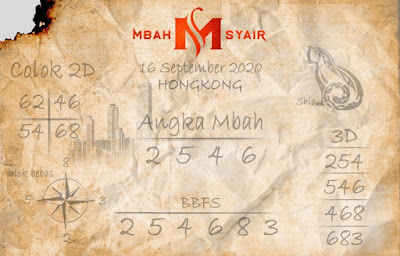 MBAH SYAIR
16 September 2020
HONGKONG
Colok 2D
62 46
54 68
Angka Mbah
2 5 4 6
Shio
3D
254
546
468
683
colok bebas
8
3
2
BBFS
2 5 4 6 8 3